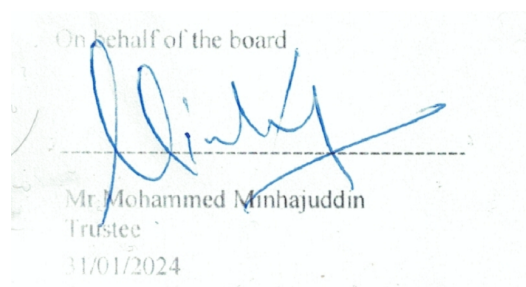 On behalf of the board
Mr Mohammed Minhajuddin
Trustee
31/01/2024